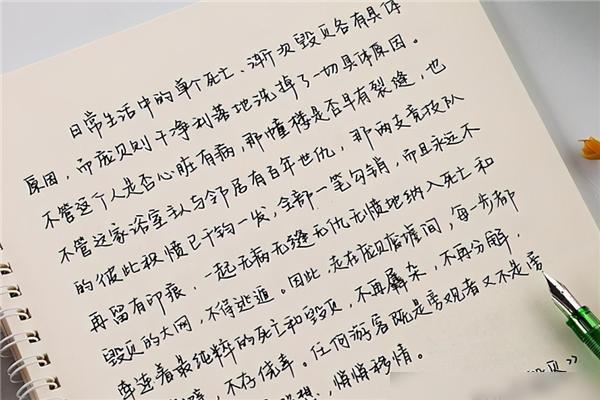 日常生活中的单个死亡、渐次毁灭各有具体
原因，而庞贝则干净利落地洗掉了一切具体原因。
不管这个人是否心脏有病，那幢楼是否早有裂缝，也
不管这家浴室主人与邻居有百年世仇，那两支竞技队
的彼此积愤已千钧一发，全部一笔勾销，而且永远不
再留有印痕，一起无病无缝无仇无愤地纳入死亡和
毁灭的大网，不得逃遁。因此，走在庞贝废墟间，每一步都
牵连着最纯粹的死亡和毁灭，不再羼杂，不再分解，
不存侥幸。任何游客既是旁观者又不是旁
想，悄悄移情。
贝》